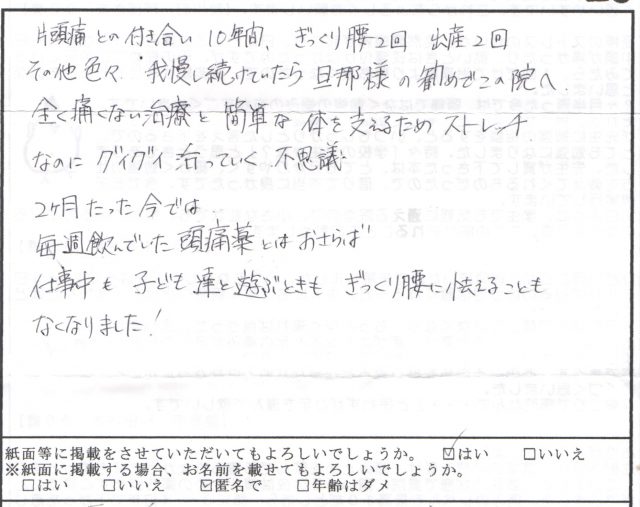 片頭痛との付き合い10年間、ぎっくり腰2回 出産2回
その他色々、我慢し続けていたら旦那様の勧めでこの院へ
全く痛くない治療と簡単な体を支えるためストレッチ
なのにグイグイ治っていく不思議
2ヶ月たった今では
毎週飲んでいた頭痛薬とはおさらば
仕事中も子ども達と遊ぶときもぎっくり腰に怯えることも
なくなりました!
紙面等に掲載をさせていただいてもよろしいでしょうか。 ☑はい □いいえ
※紙面に掲載する場合、お名前を載せてもよろしいでしょうか。
□はい □いいえ ☑匿名で □年齢はダメ